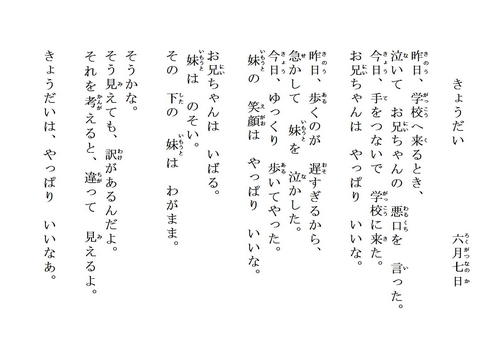 きょうだい　六月七日
昨日、学校へ来るとき、
泣いて　お兄ちゃんの　悪口を　言った。
今日、手をつないで　学校に来た。
お兄ちゃんは　やっぱり　いいな。
昨日、歩くのが　遅すぎるから、
急かして　妹を　泣かした。
今日、ゆっくり　歩いてやった。
妹の　笑顔は　やっぱり　いいな。
お兄ちゃんは　いばる。
妹は　のそい。
その　下の　妹は　わがまま。
そうかな。
そう見えても、訳があるんだよ。
それを　考えると、違って　見えるよ。
きょうだいは、やっぱり　いいなあ。